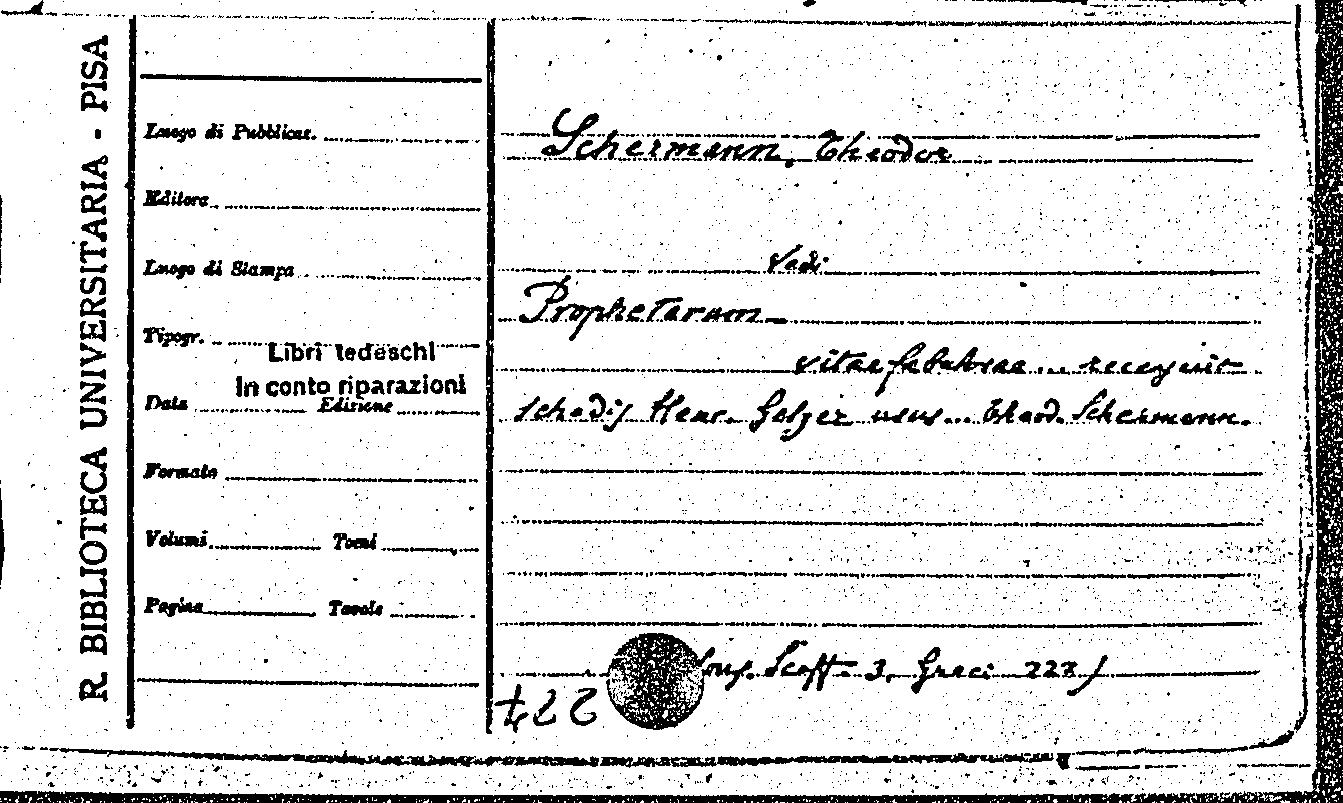 R BIBLIOTECA UNIVERSITARIA - PISA
Luogo di Pubblicaz.
Editore
Luogo di Stampa
Tipogr.
Libri tedeschi
In conto riparazioni
Data Edizione
Formato
Volumi Tomi
Pagine Tavole
Schermann, Theodor
Vedi
Prophetarum
vitae fabulosae ... recognit
schedis Henr. Gelzer usus... Theod. Schermann.
Scaff. 3. Greci 222)